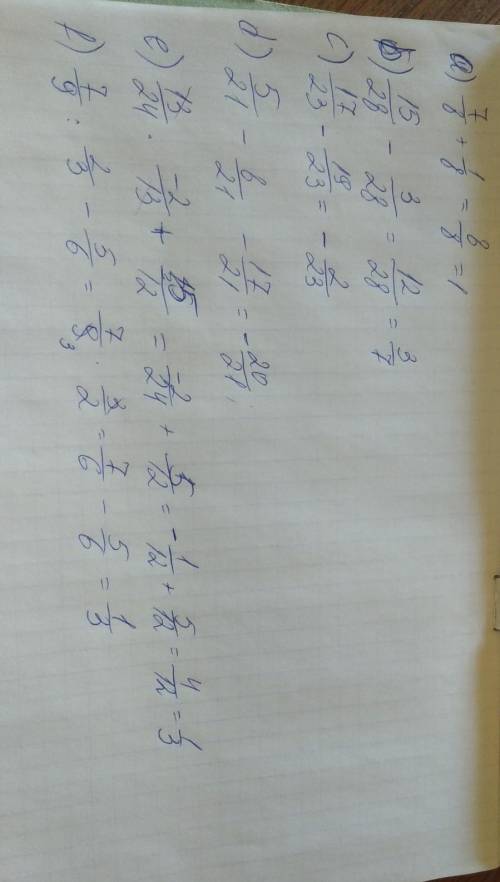 a) 7/8 + 1/8 = 8/8 = 1
b) 15/28 - 3/28 = 12/28 = 3/7
c) 17/23 - 19/23 = - 2/23
d) 5/21 - 8/21 - 17/21 = - 20/21;
e) 13/24 · -2/13 + 5/12 = -2/24 + 5/12 = - 1/12 + 5/12 = 4/12 = 1/3
f) 7/9 : 2/3 - 5/6 = 7/9 3 · 3/2 = 7/6 - 5/6 = 1/3